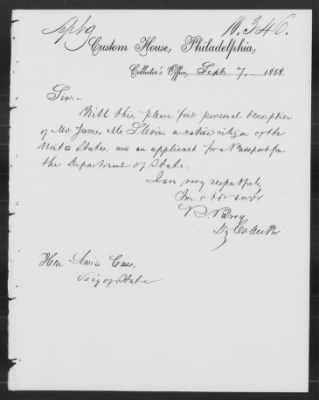 Sept 9 N. 346.
Custom House, Philadelphia,
Collector's Office, Sept. 7, 1858.
Sir:-
With this, please find personal description
of Mr James Mc a native citizen of the
United States, and an applicant for a Passport from
the Department of State.
I am very respectfully
Dy Collector
Hon Lewis Cass.
Secy of State